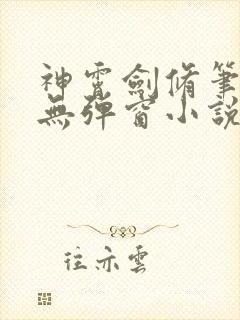 神霄劍脩筆
無彈窗小説
往亦雲